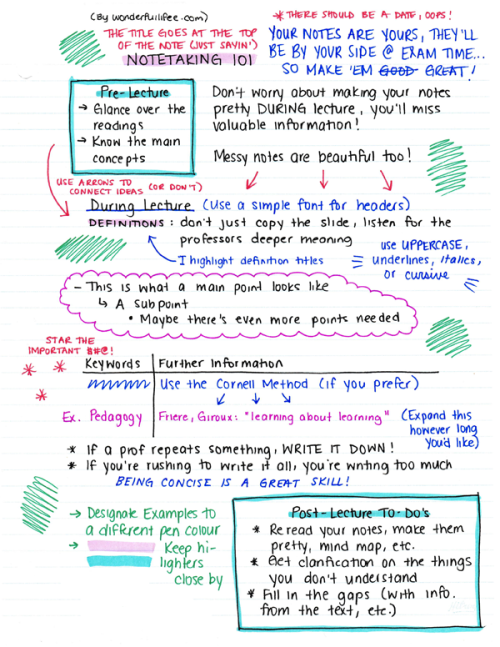 (By wonderfullifee.com)
* THERE SHOULD BE A DATE, OOPS!
THE TITLE GOES AT THE TOP
OF THE NOTE (JUST SAYIN')
NOTETAKING 101
YOUR NOTES ARE YOURS, THEY'LL
BE BY YOUR SIDE @ EXAM TIME...
SO MAKE 'EM GOOD GREAT!
Pre-Lecture
→ Glance over the
readings
→ Know the main
concepts
Don't worry about making your notes
pretty DURING lecture, you'll miss
valuable information!
Messy notes are beautiful too!
USE ARROWS TO
CONNECT IDEAS (OR DON'T)
During Lecture (Use a simple font for headers)
DEFINITIONS: don't just copy the slide, listen for the
professors deeper meaning
I highlight definition titles
use UPPERCASE,
underlines, italics,
or cursive
- This is what a main point looks like
↳ A Subpoint
• Maybe there's even more points needed
STAR THE
IMPORTANT $#@!
Keywords
Further Information
Use the Cornell Method (if you prefer)
Ex. Pedagogy
Friere, Giroux: "learning about learning"
(Expand this
however long
you'd like)
* If a prof repeats something, WRITE IT DOWN!
* If you're rushing to write it all, you're writing too much
BEING CONCISE IS A GREAT SKILL!
→ Designate Examples to
a different pen colour
→ Keep hi-
lighters
close by
Post-Lecture To-Do's
* Reread your notes, make them
pretty, mind map, etc.
* Get clarification on the things
you don't understand
* Fill in the gaps (with info.
from the text, etc.)